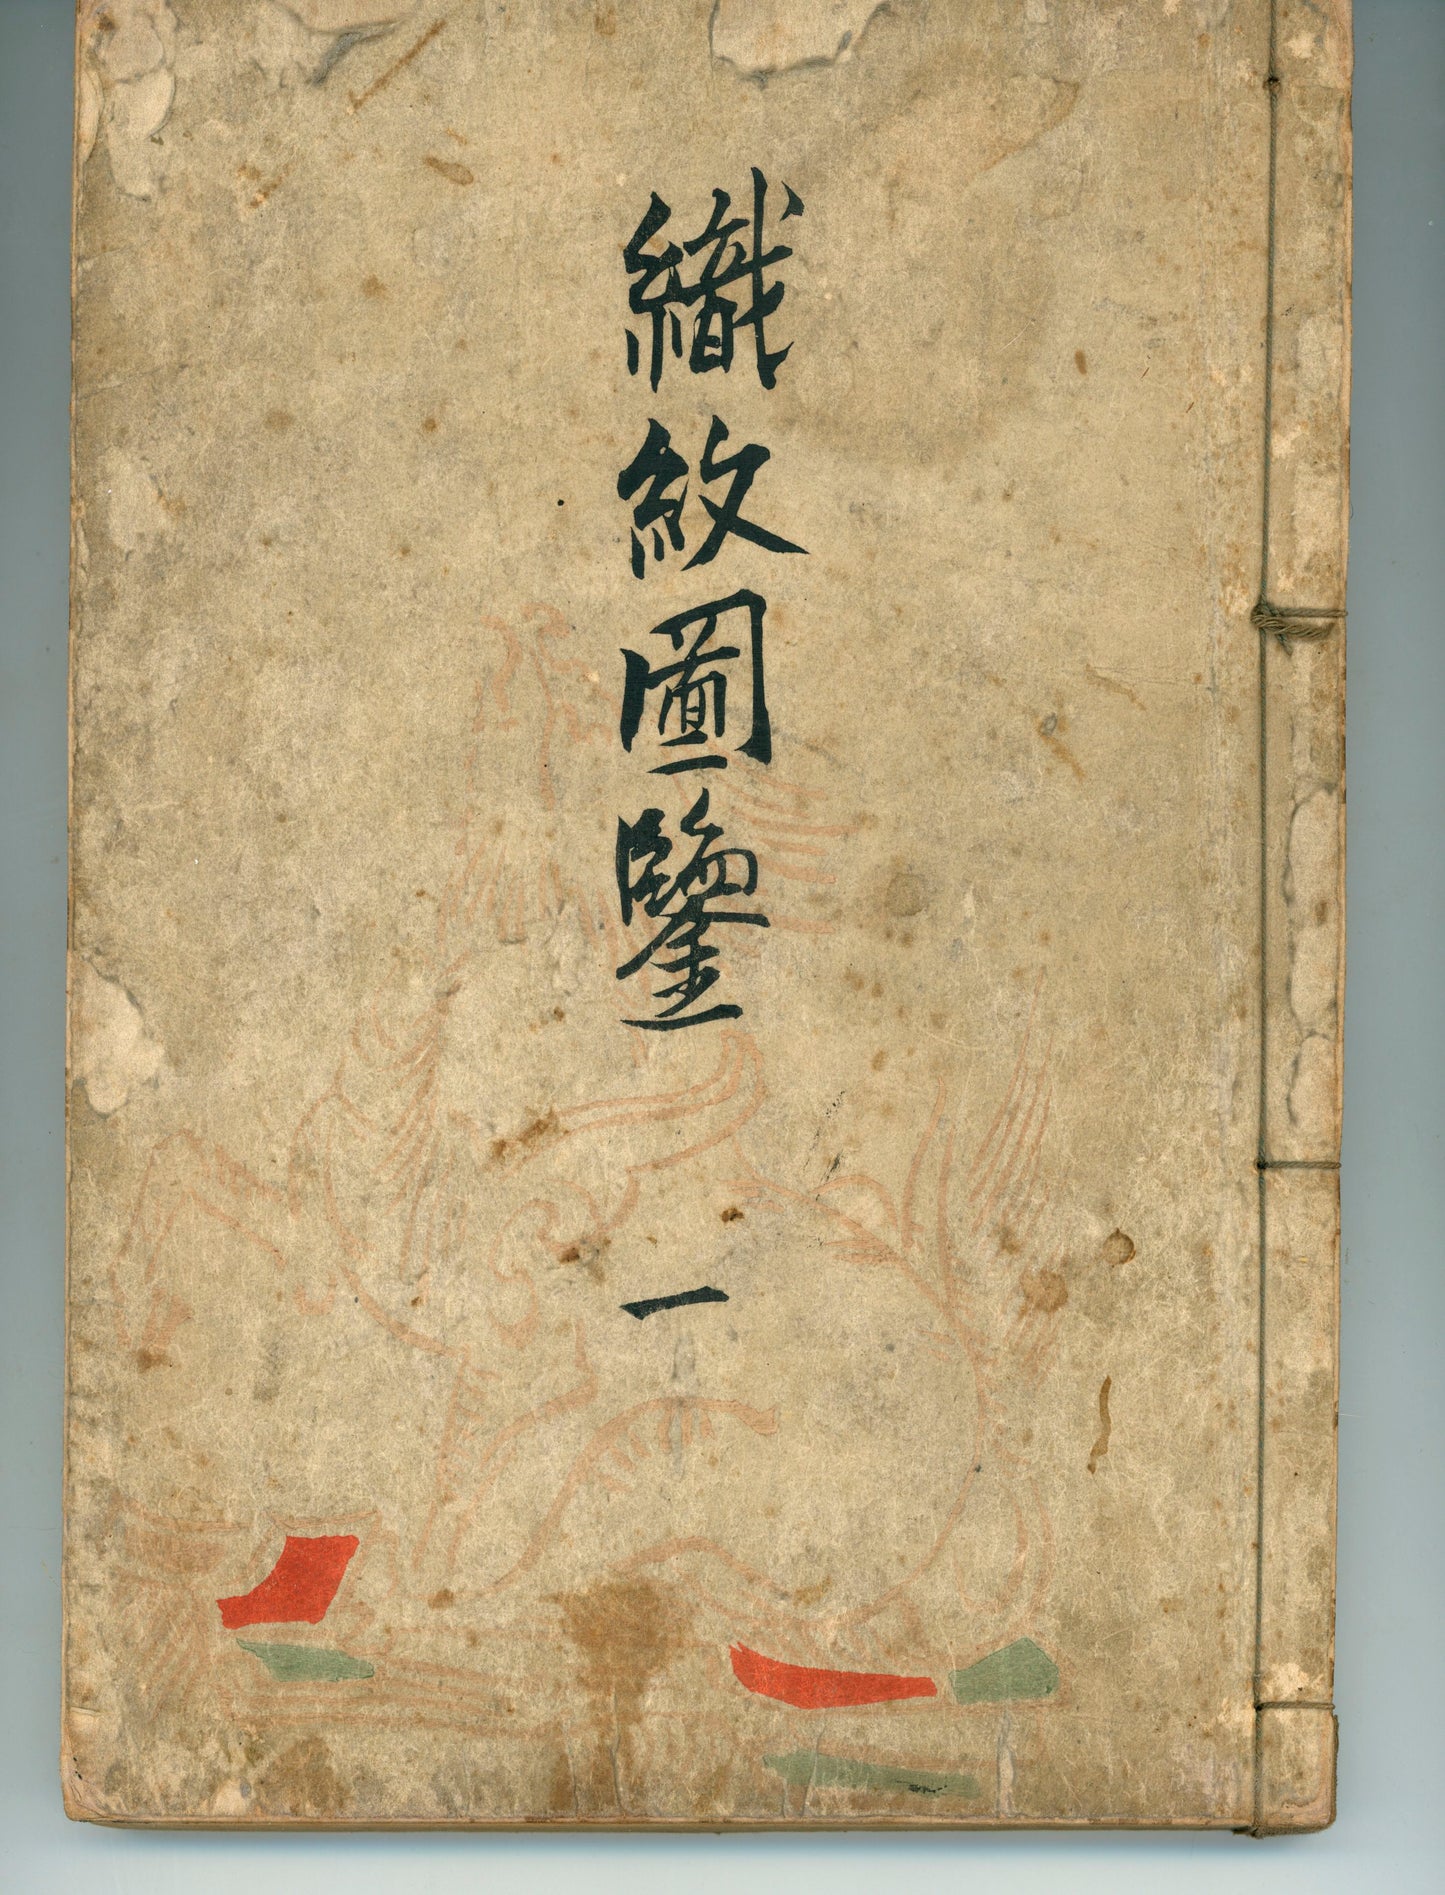 織紋圖鑒 一